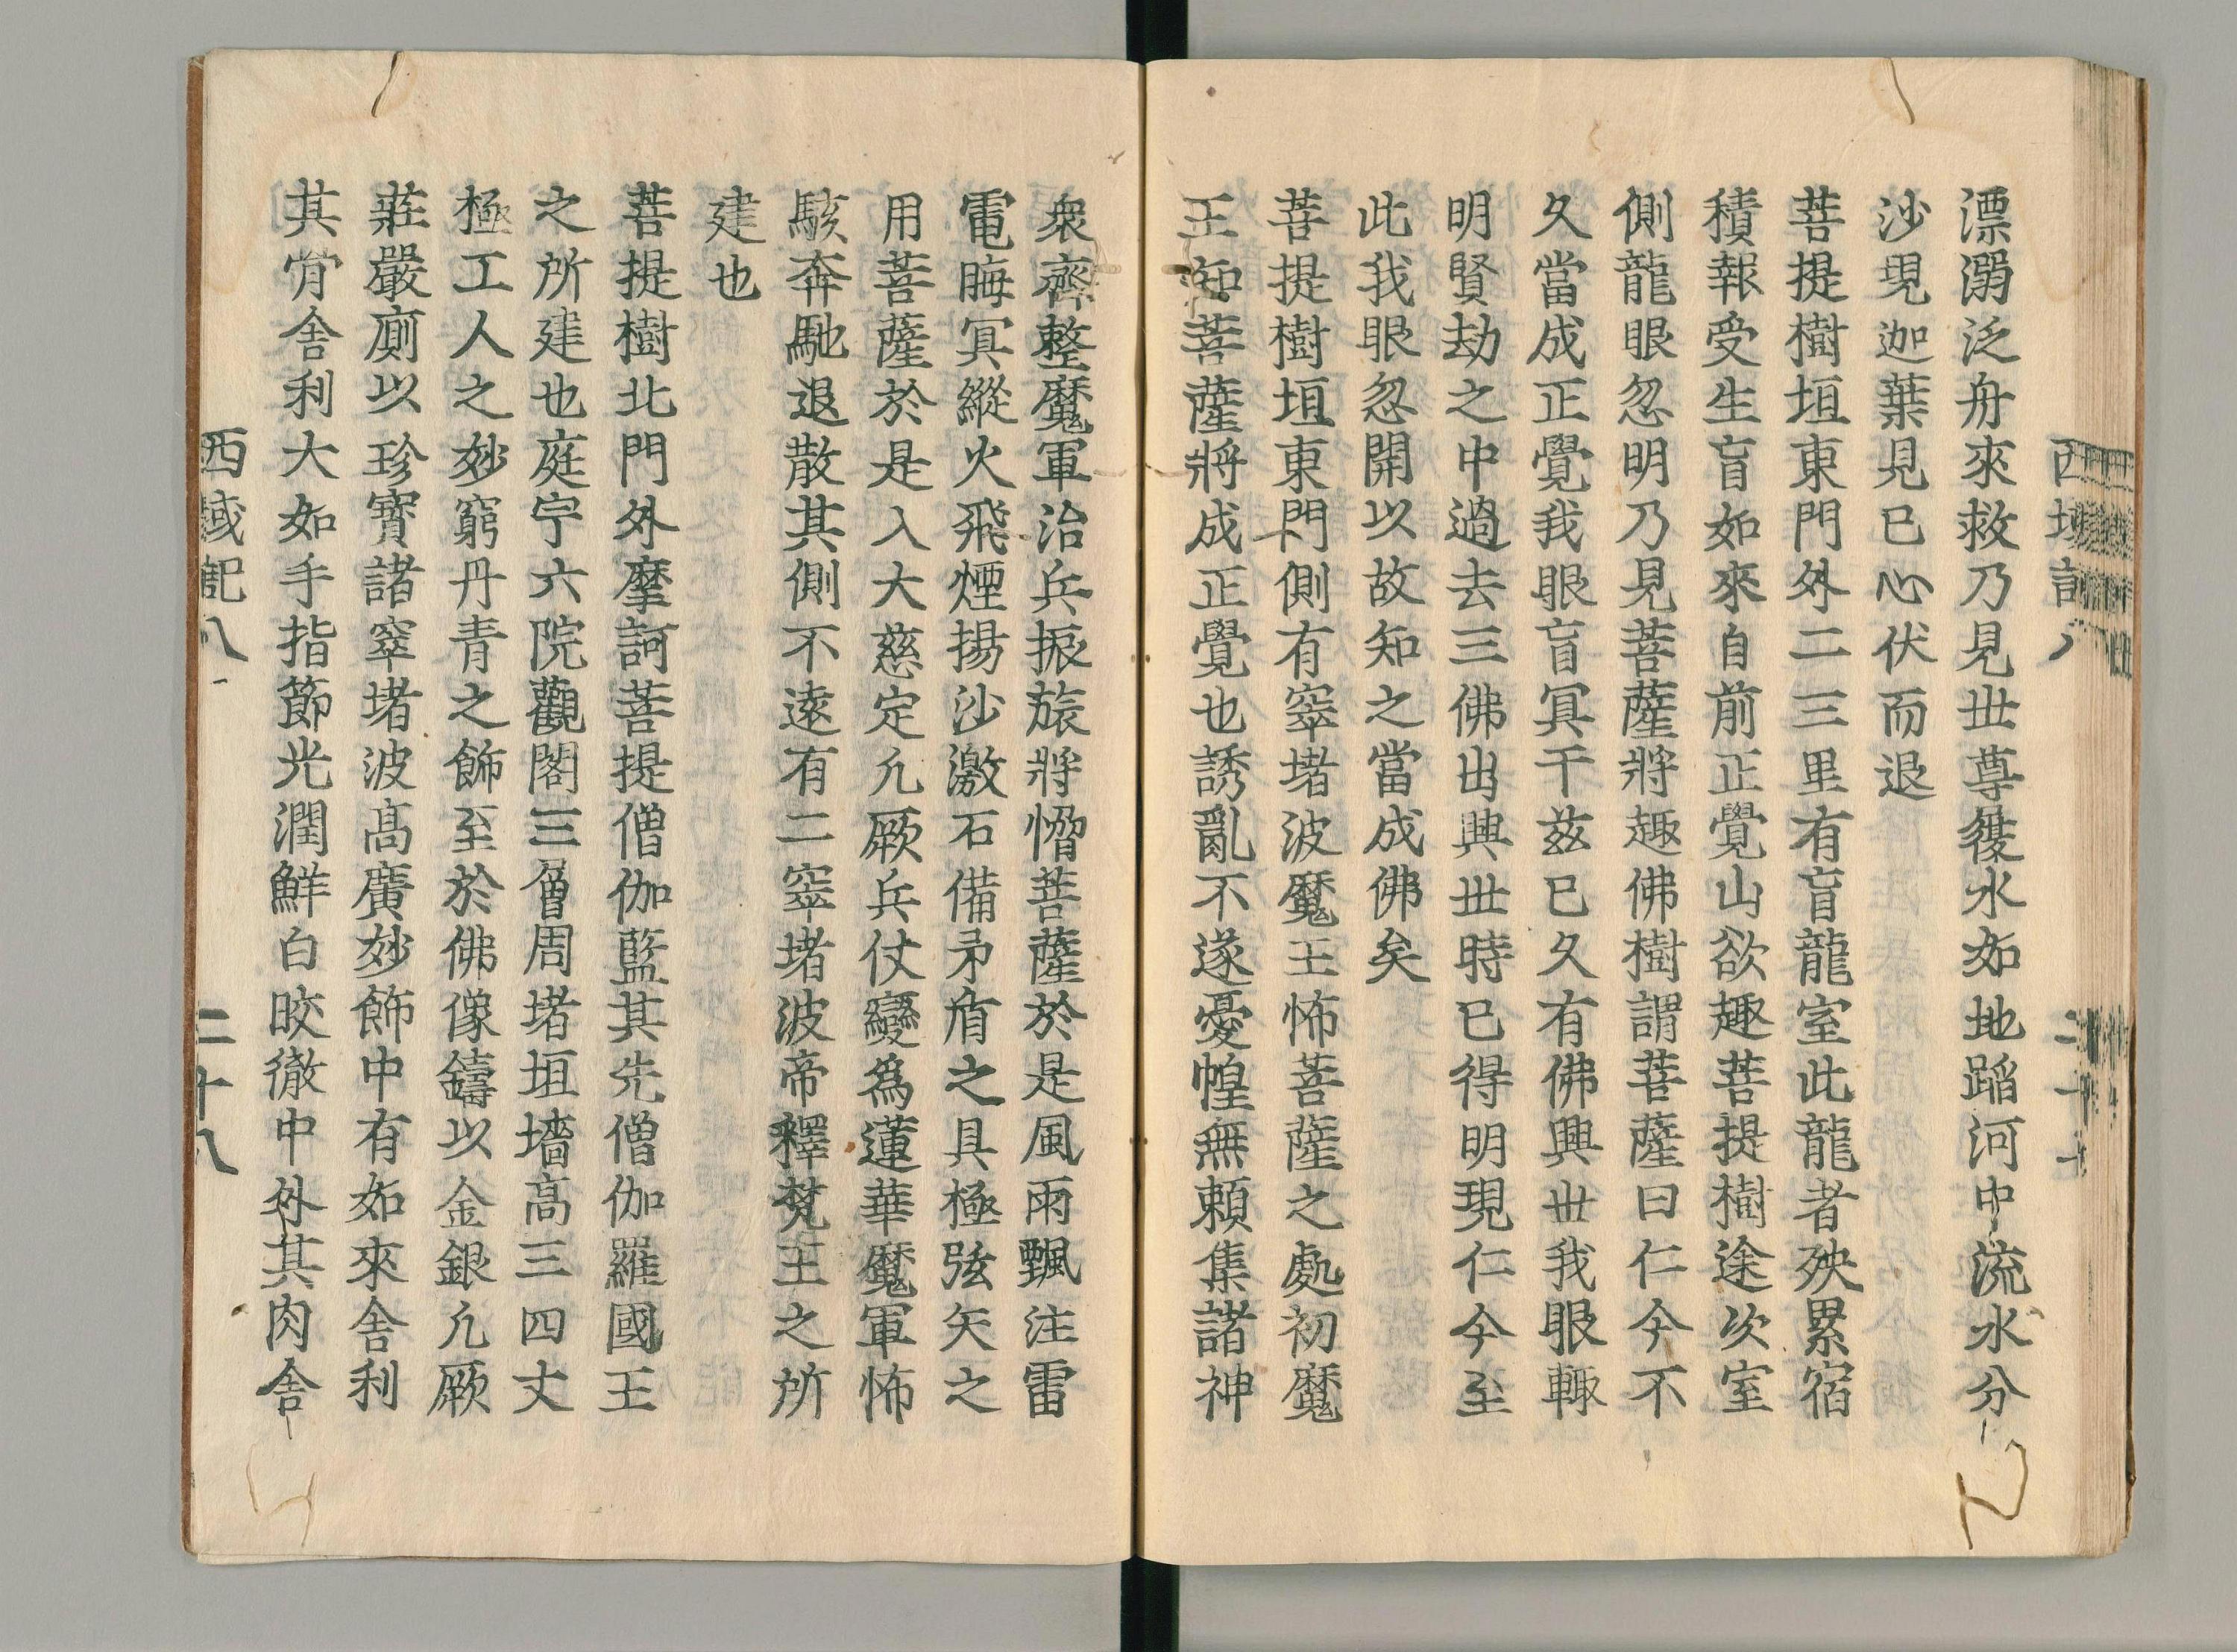 漂溺泛舟來救乃見世尊履水如地蹈河中流水分
沙現迦葉見已心伏而退
菩提樹垣東門外二三里有盲龍室此龍者殃累宿
積報受生盲如來自前正覺山欲趣菩提樹途次室
側龍眼忽明乃見菩薩將趣佛樹謂菩薩曰仁今不
久當成正覺我眼盲冥于茲已久有佛興世我眼輒
明賢劫之中過去三佛出興世時已得明現仁今至
此我眼忽開以故知之當成佛矣
菩提樹垣東門側有窣堵波魔王怖菩薩之處初魔
王知菩薩將成正覺也誘亂不遂憂惶無賴集諸神
衆齊整魔軍治兵振旅將憎菩薩於是風雨飄注雷
電晦冥縱火飛煙揚沙激石備矛盾之具極弦矢之
用菩薩於是入大慈定凡厥兵仗變爲蓮華魔軍怖
駭奔馳退散其側不遠有二窣堵波帝釋梵王之所
建也
菩提樹北門外摩訶菩提僧伽藍其先僧伽羅國王
之所建也庭宇六院觀閣三層周堵垣墻高三四丈
極工人之妙窮丹青之飾至於佛像鑄以金銀凡厥
莊嚴廁以珍寶諸窣堵波高廣妙飾中有如來舍利
其骨舍利大如手指節光潤鮮白皎徹中外其肉舍
西域記八 二十八